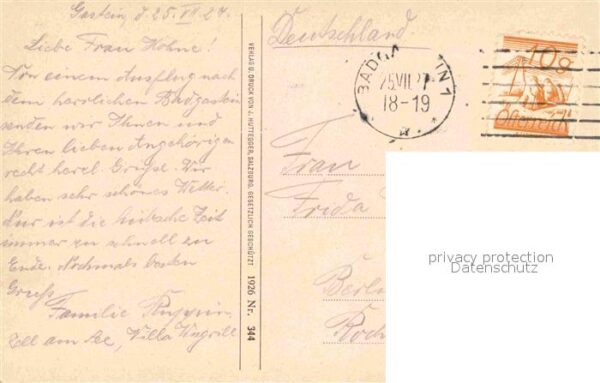 Gastein, d. 25. VII. 27.
Liebe Frau Kohne!
Von einem Ausflug nach
dem herrlichen Badgastein
senden wir Ihnen und
Ihren lieben Angehörigen
recht herzl. Grüsse. Wir
haben sehr schönes Wetter.
Nur ist die hübsche Zeit
immer zu schnell zu
Ende. Nochmals besten
Gruss
Familie
Zell am See, Villa
VERLAG U. DRUCK VON J. HUTTEGGER, SALZBURG. GESETZLICH GESCHÜTZT
1926 Nr. 344
Deutschland.
BADGA IN 1
25.VII.27
18-19
10g
Österreich
Frau
Frida
Berli
privacy protection
Datenschutz